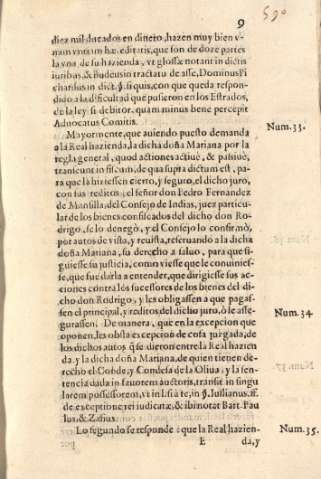 9
590
diez mil ducados en dinero, hazen muy bien v-
nam vntiam hæreditatis, que son de doze partes
la vna de su hazienda, vt glossæ notant in dictis
iuribus, & Budeus in tractatu de asse, Dominus Pi
chardus in dict. §. si quis, con que queda respon-
dido a la dificultad que pusieron en los Estrados,
de la ley si debitor, quam minus bene percepit
Advocatus Comitis.
Mayormente, que auiendo puesto demanda
a la Real hazienda, la dicha doña Mariana por la
regla general, quod actiones actiuè, & passiuè,
transeunt in fiscum, de qua supra dictum est, pa-
ra que la hiziessen cierto, y seguro, el dicho juro,
con sus reditos: el señor don Pedro Fernandez
de Mansilla, del Consejo de Indias, juez particu-
lar de los bienes confiscados del dicho don Ro-
drigo, se lo denegò, y el Consejo lo confirmò,
por autos de vista, y reuista, reseruando a la dicha
doña Mariana, su derecho a saluo, para que si-
guiesse su justicia, como viesse que le conuinies-
se, que fue darla a entender, que dirigiesse sus ac-
ciones contra los sucessores de los bienes del di-
cho don Rodrigo, y les obligassen a que pagas-
sen el principal, y reditos del dicho juro, ò le asse-
gurassen. De manera, que en la excepcion que
oponen, les obsta excepcion de cosa juzgada, de
los dichos autos q̃ se dieron entre la Real hazien
da, y la dicha doña Mariana, de quien tienen de-
recho el Conde, y Condesa de la Oliua, y la sen-
tencia dada in fauorem auctoris, transit in singu
larem possessorem, vt in l. si a te, in §. Iulianus. ff.
de exceptione rei iudicatæ, & ibi notat Bart. Pau
lus, & Zasius.
Lo segundo se responde, que la Real hazien-
E
da, y
Num. 33.
Num. 34
Num. 35.